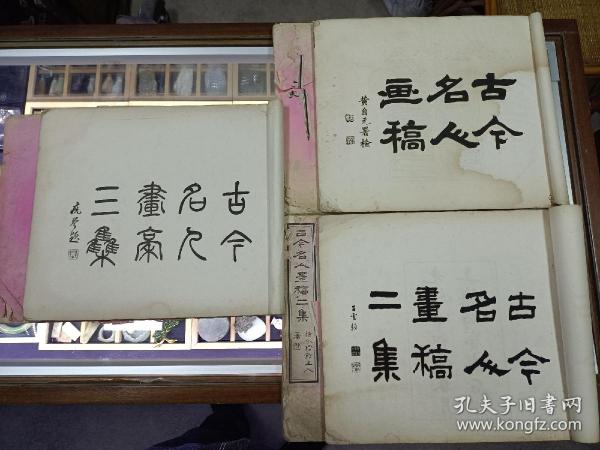 古今
名人
画稿
黄自元署检
古今
名人
畫稾
三集
古今
名人
畫稿
二集
古今名人畫稿二集
孔夫子旧书网
www.kongfz.com